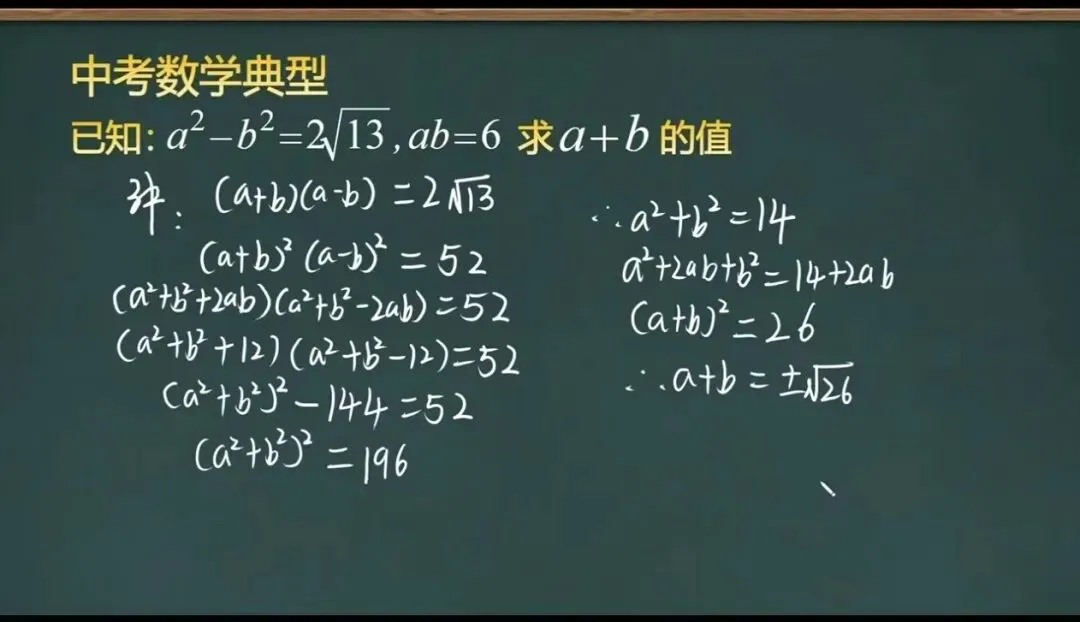 中考数学典型
已知: a²-b²=2√13, ab=6 求a+b的值
解: (a+b)(a-b)=2√13
(a+b)²(a-b)²=52
(a²+b²+2ab)(a²+b²-2ab)=52
(a²+b²+12)(a²+b²-12)=52
(a²+b²)²-144=52
(a²+b²)²=196
∴a²+b²=14
a²+2ab+b²=14+2ab
(a+b)²=26
∴a+b=±√26